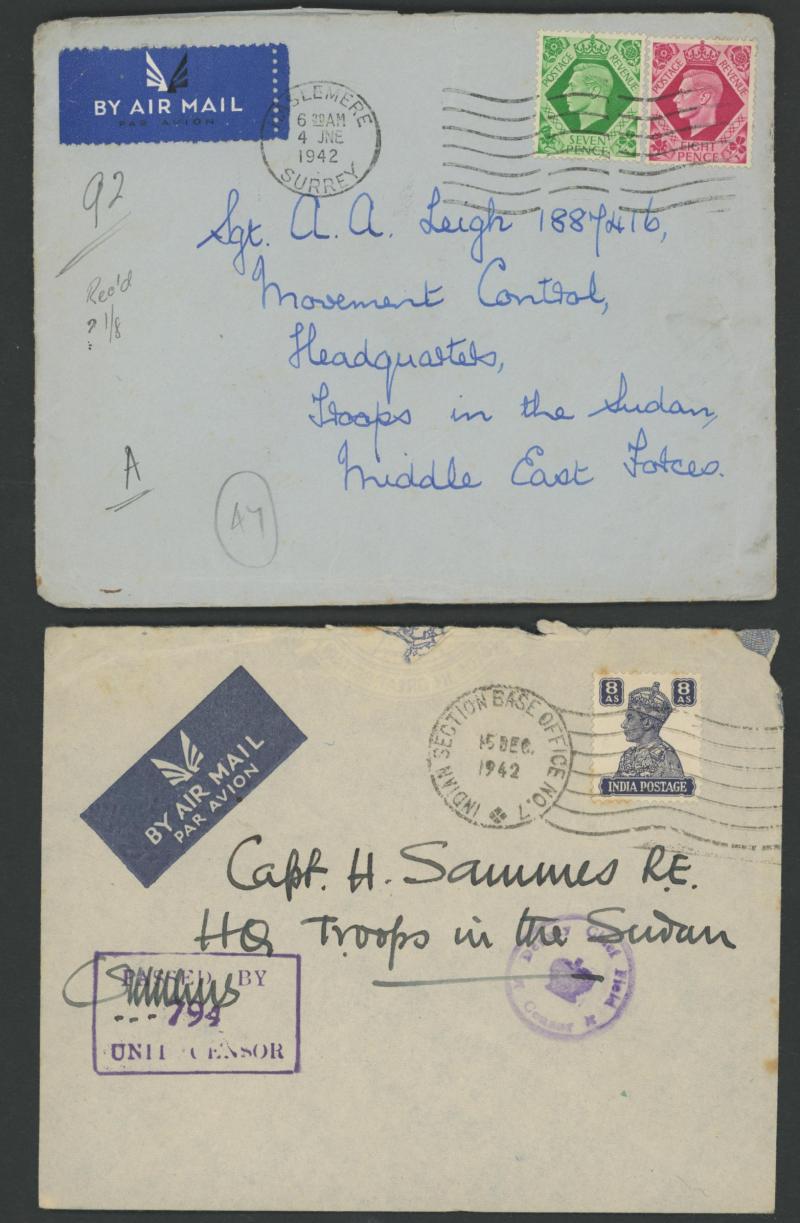 BY AIR MAIL
PAR AVION
HASLEMERE
6 30AM
4 JNE
1942
SURREY
POSTAGE REVENUE
SEVEN PENCE
POSTAGE REVENUE
EIGHT PENCE
92
Rec'd
? 1/8
A
47
Sgt. A. A. Leigh 1887416,
Movement Control,
Headquarters,
Troops in the Sudan,
Middle East Forces.
BY AIR MAIL
PAR AVION
INDIAN SECTION BASE OFFICE NO. 7
15 DEC.
1942
8 AS 8 AS
INDIA POSTAGE
Capt. H. Sammes R.E.
HQ Troops in the Sudan
PASSED BY
794
UNIT CENSOR
Chief Field Censor